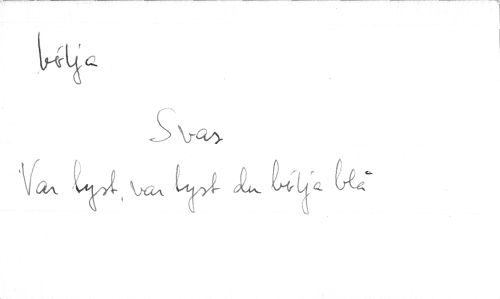 bölja
Svar
Var tyst, var tyst du bölja blå